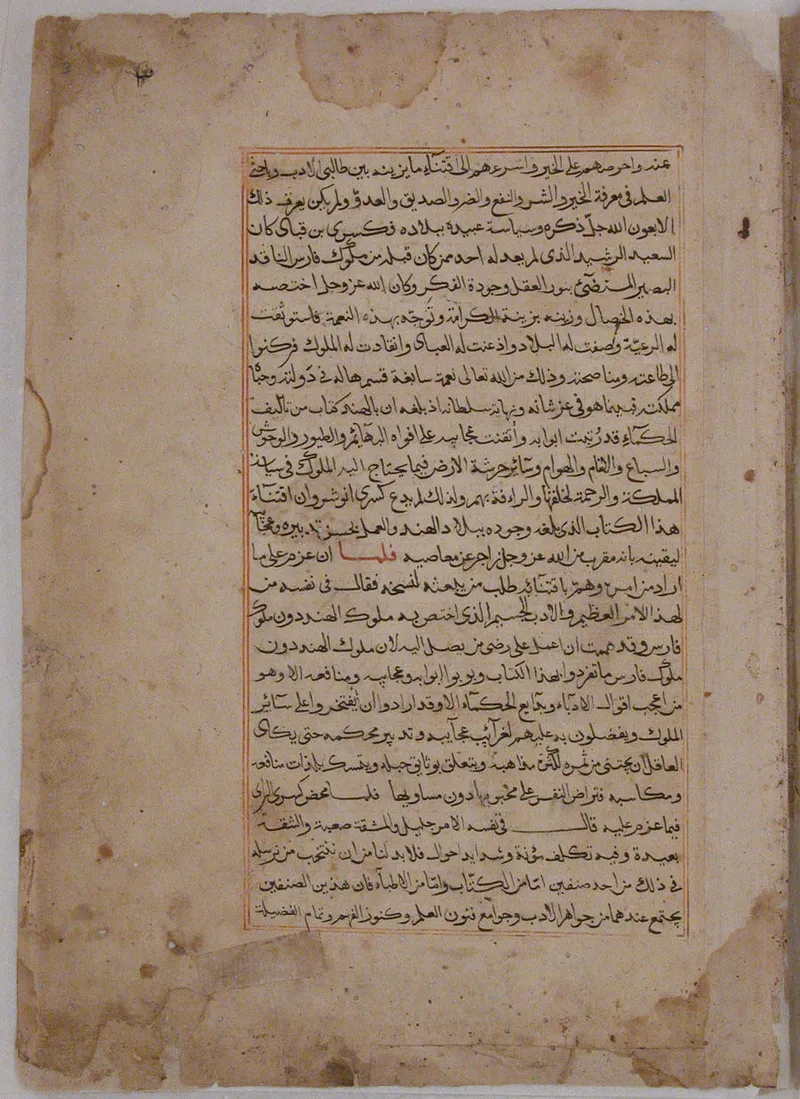 عنه واحرصهم على الخير واسرعهم الى اقتناء ما يزينه بين طالبي الادب وباحثي
العلم في معرفة الخير والشر والنفع والضر والصديق والعدو ولم يكن يعرف ذلك
الا بعون الله جل ذكره وسياسة عبيده ببلاده فكسرى بن قباد كان
السعيد الرشيد الذي لم يعدله احد ممن كان قبله من ملوك فارس النافد
البصير المستضئ بنور العقل وجودة الفكر وكان الله عز وجل اختصه
بهذه الخصال وزينه بزينة الكرامة وتوجه بهذه النعمة فاستوثقت
له الرعية وصفت له البلاد واذعنت له العباد وانقادت له الملوك فركنوا
الى طاعته ومناصحته وذلك من الله تعالى نعمة سابغة قسمها له في دولته وحباه
مملكته فبينما هو في عز شانه ونهاية سلطانه اذ بلغه ان بالهند كتاب من تاليف
الحكماء قد رتبت ابوابه واتقنت عجايبه على افواه البهائم والطيور والوحوش
والسباع والهوام وسائر حرشة الارض فيما يحتاج اليه الملوك في سياسة
المملكة والرحمة لخلقها والرافة بهم ولذلك لم يدع كسرى انوشروان اقتناء
هذا الكتاب الذي بلغه وجوده ببلاد الهند والعمل بحسن تدبيره وعجايبه
ليقينه بانه مقرب من الله عز وجل زاجر عن معاصيه فلما ان عزم على ما
اراد من امره وهم باقتنائه طلب من يبعثه لنسخه فقال في نفسه من
لهذا الامر العظيم والادب الجسيم الذي اختص به ملوك الهند دون ملوك
فارس وقد هممت ان اعمل على رضى من يصل اليه لان ملوك الهند دون
ملوك فارس ما تفردوا بهذا الكتاب وبوبوا ابوابه وعجايبه ومنافعه الا وهو
من اعجب اقوال الادباء وبدايع الحكماء الا وقد ارادوا ان يفتخروا على سائر
الملوك ويفضلون به عليهم لغرائب عجايبه وتدبير محكمه حتى يكاد
العاقل ان يجتني من ثمره لكثرة مذاهبه ويتعلق بوثايق حبله ويتمسك بلذات منافعه
ومكاسبه فتراض النفس على محبوبها دون مساويها فلما محض كسرى الراي
فيما عزم عليه قال في نفسه الامر جليل والمشقة صعبة والشقة
بعيدة وفيه تكلف مؤنة وشدايد احوال فلا بد لنا من ان ننتخب من نرسله
في ذلك من احد صنفين اما من الكتاب واما من الاطباء فان هذين الصنفين
يجتمع عندهما من جواهر الادب وجوامع فنون العلم وكنوز الفرح وتمام الفضيلة